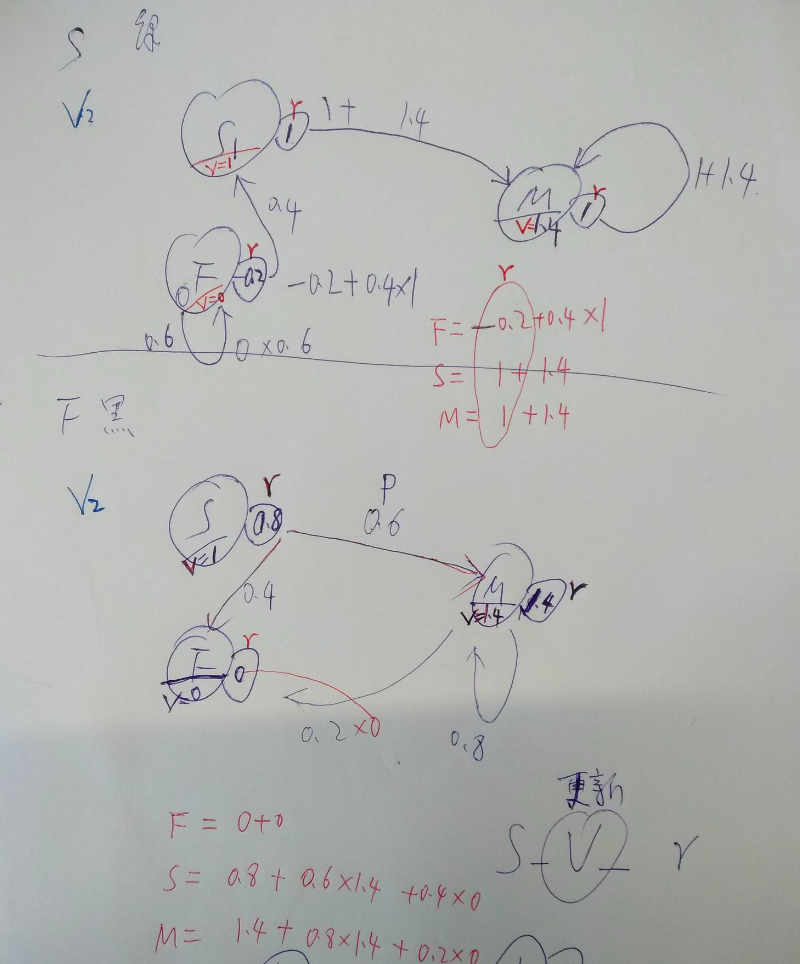 S 绿
V₂
S₁ V=1 r 1
1+ 1.4
M V=1.4 r 1
1+1.4
0.4
F V=0 r -0.2
0
-0.2+0.4×1
0.6
0×0.6
r
F= -0.2+0.4×1
S= 1+1.4
M= 1+1.4
F 黑
V₂
S V=1 r 0.8
P
0.6
M V=1.4 1.4 r
0.4
F V=0 r 0
0.2×0
0.8
F = 0+0
更新
S-V- r
S= 0.8+0.6×1.4+0.4×0
M= 1.4+0.8×1.4+0.2×0